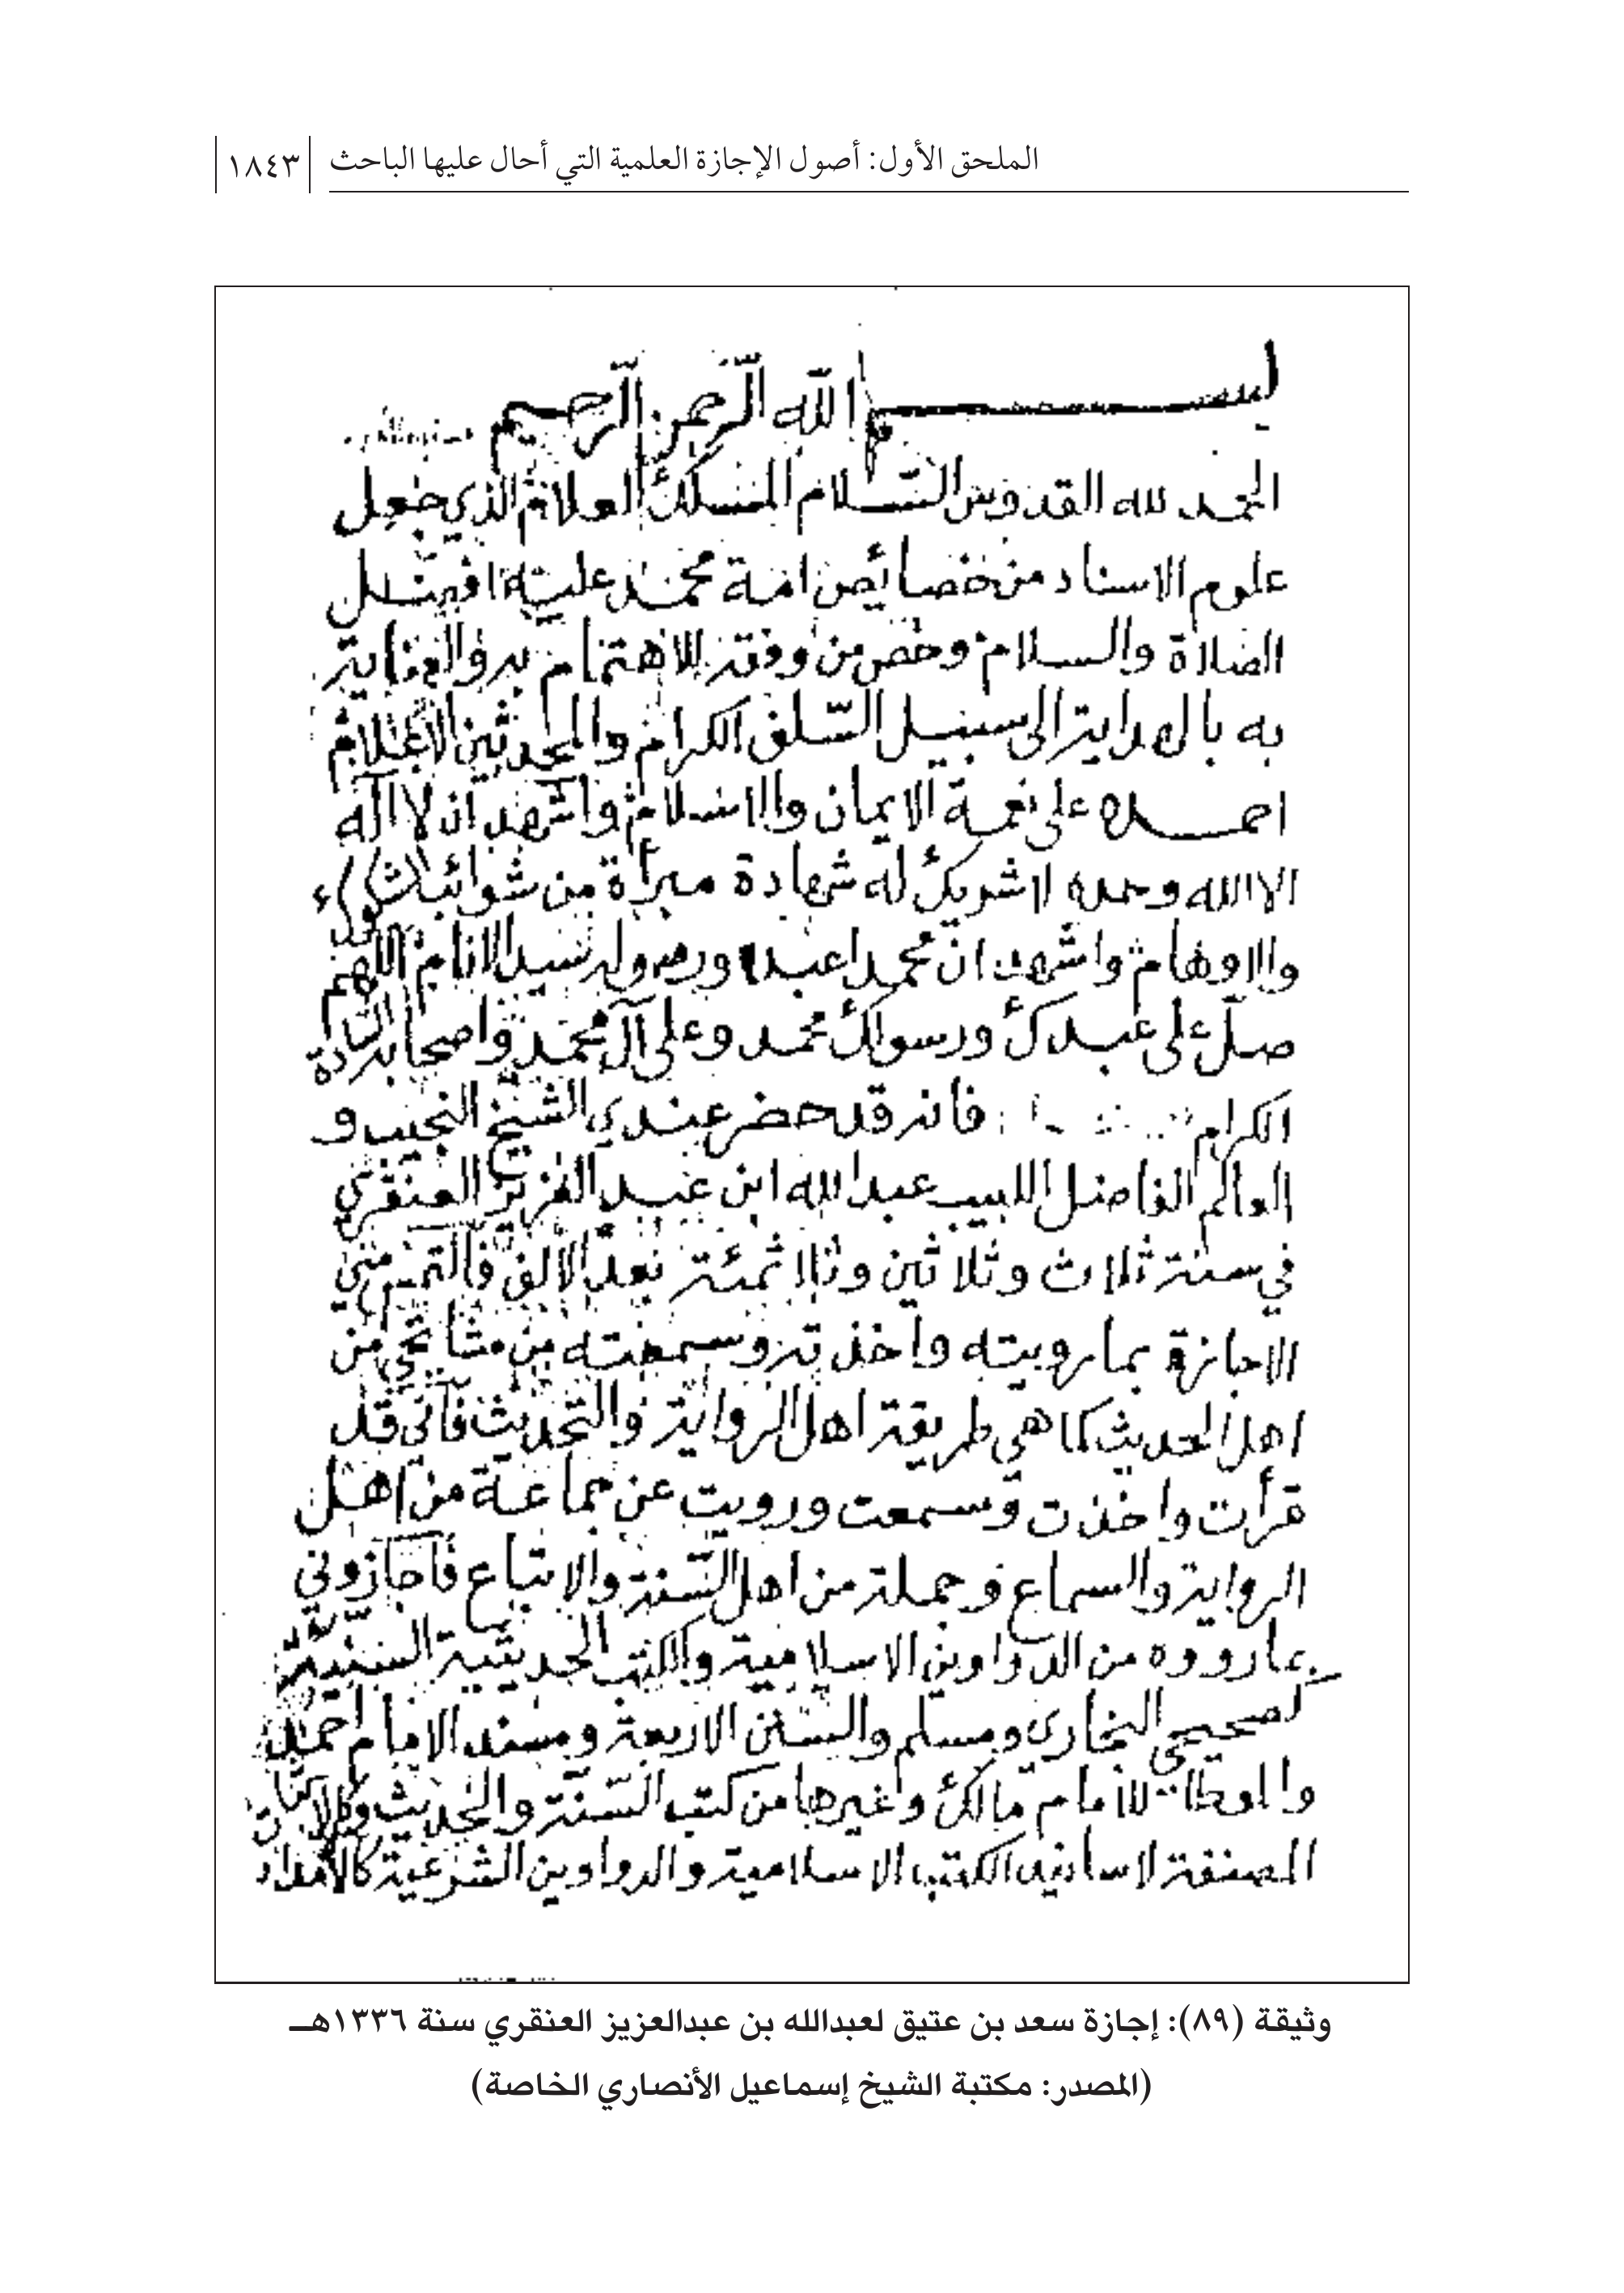 الملحق الأول: أصول الإجازة العلمية التي أحال عليها الباحث
١٨٤٣
بسم الله الرحمن الرحيم
الحمد لله القدوس السلام الملك العلام الذي جعل
علوم الاسناد من خصائص امة محمد عليه افضل
الصلاة والسلام وخص من وفقه للاهتمام به والعناية
به بالهداية الى سبيل السلف الكرام والمحدثين الاعلام
احمده على نعمة الايمان والاسلام واشهد ان لا اله
الا الله وحده لا شريك له شهادة مبرأة من شوائب الشكوك
والاوهام واشهد ان محمدا عبده ورسوله سيد الانام اللهم
صل على عبدك ورسولك محمد وعلى آل محمد واصحابه السادة
الكرام فانه قد حضر عندي الشيخ النجيب و
العالم الفاضل اللبيب عبد الله ابن عبد العزيز العنقري
في سنة ثلاث وثلاثين وثلاثمئة بعد الالف فالتمس مني
الاجازة بما رويته واخذته وسمعته من مشايخي من
اهل الحديث كما هي طريقة اهل الرواية والتحديث فاني قد
قرأت واخذت وسمعت ورويت عن جماعة من اهل
الرواية والسماع وجملة من اهل السنة والاتباع فاجازوني
بما رووه من الدواوين الاسلامية والكتب الحديثية السنية
كصحيحي البخاري ومسلم والسنن الاربعة ومسند الامام احمد
والموطا للامام مالك وغيرها من كتب السنة والحديث وكالاثبات
المصنفة لاسانيد الكتب الاسلامية والدواوين الشرعية كالامداد
وثيقة (٨٩): إجازة سعد بن عتيق لعبدالله بن عبدالعزيز العنقري سنة ١٣٣٦هـ
(المصدر: مكتبة الشيخ إسماعيل الأنصاري الخاصة)